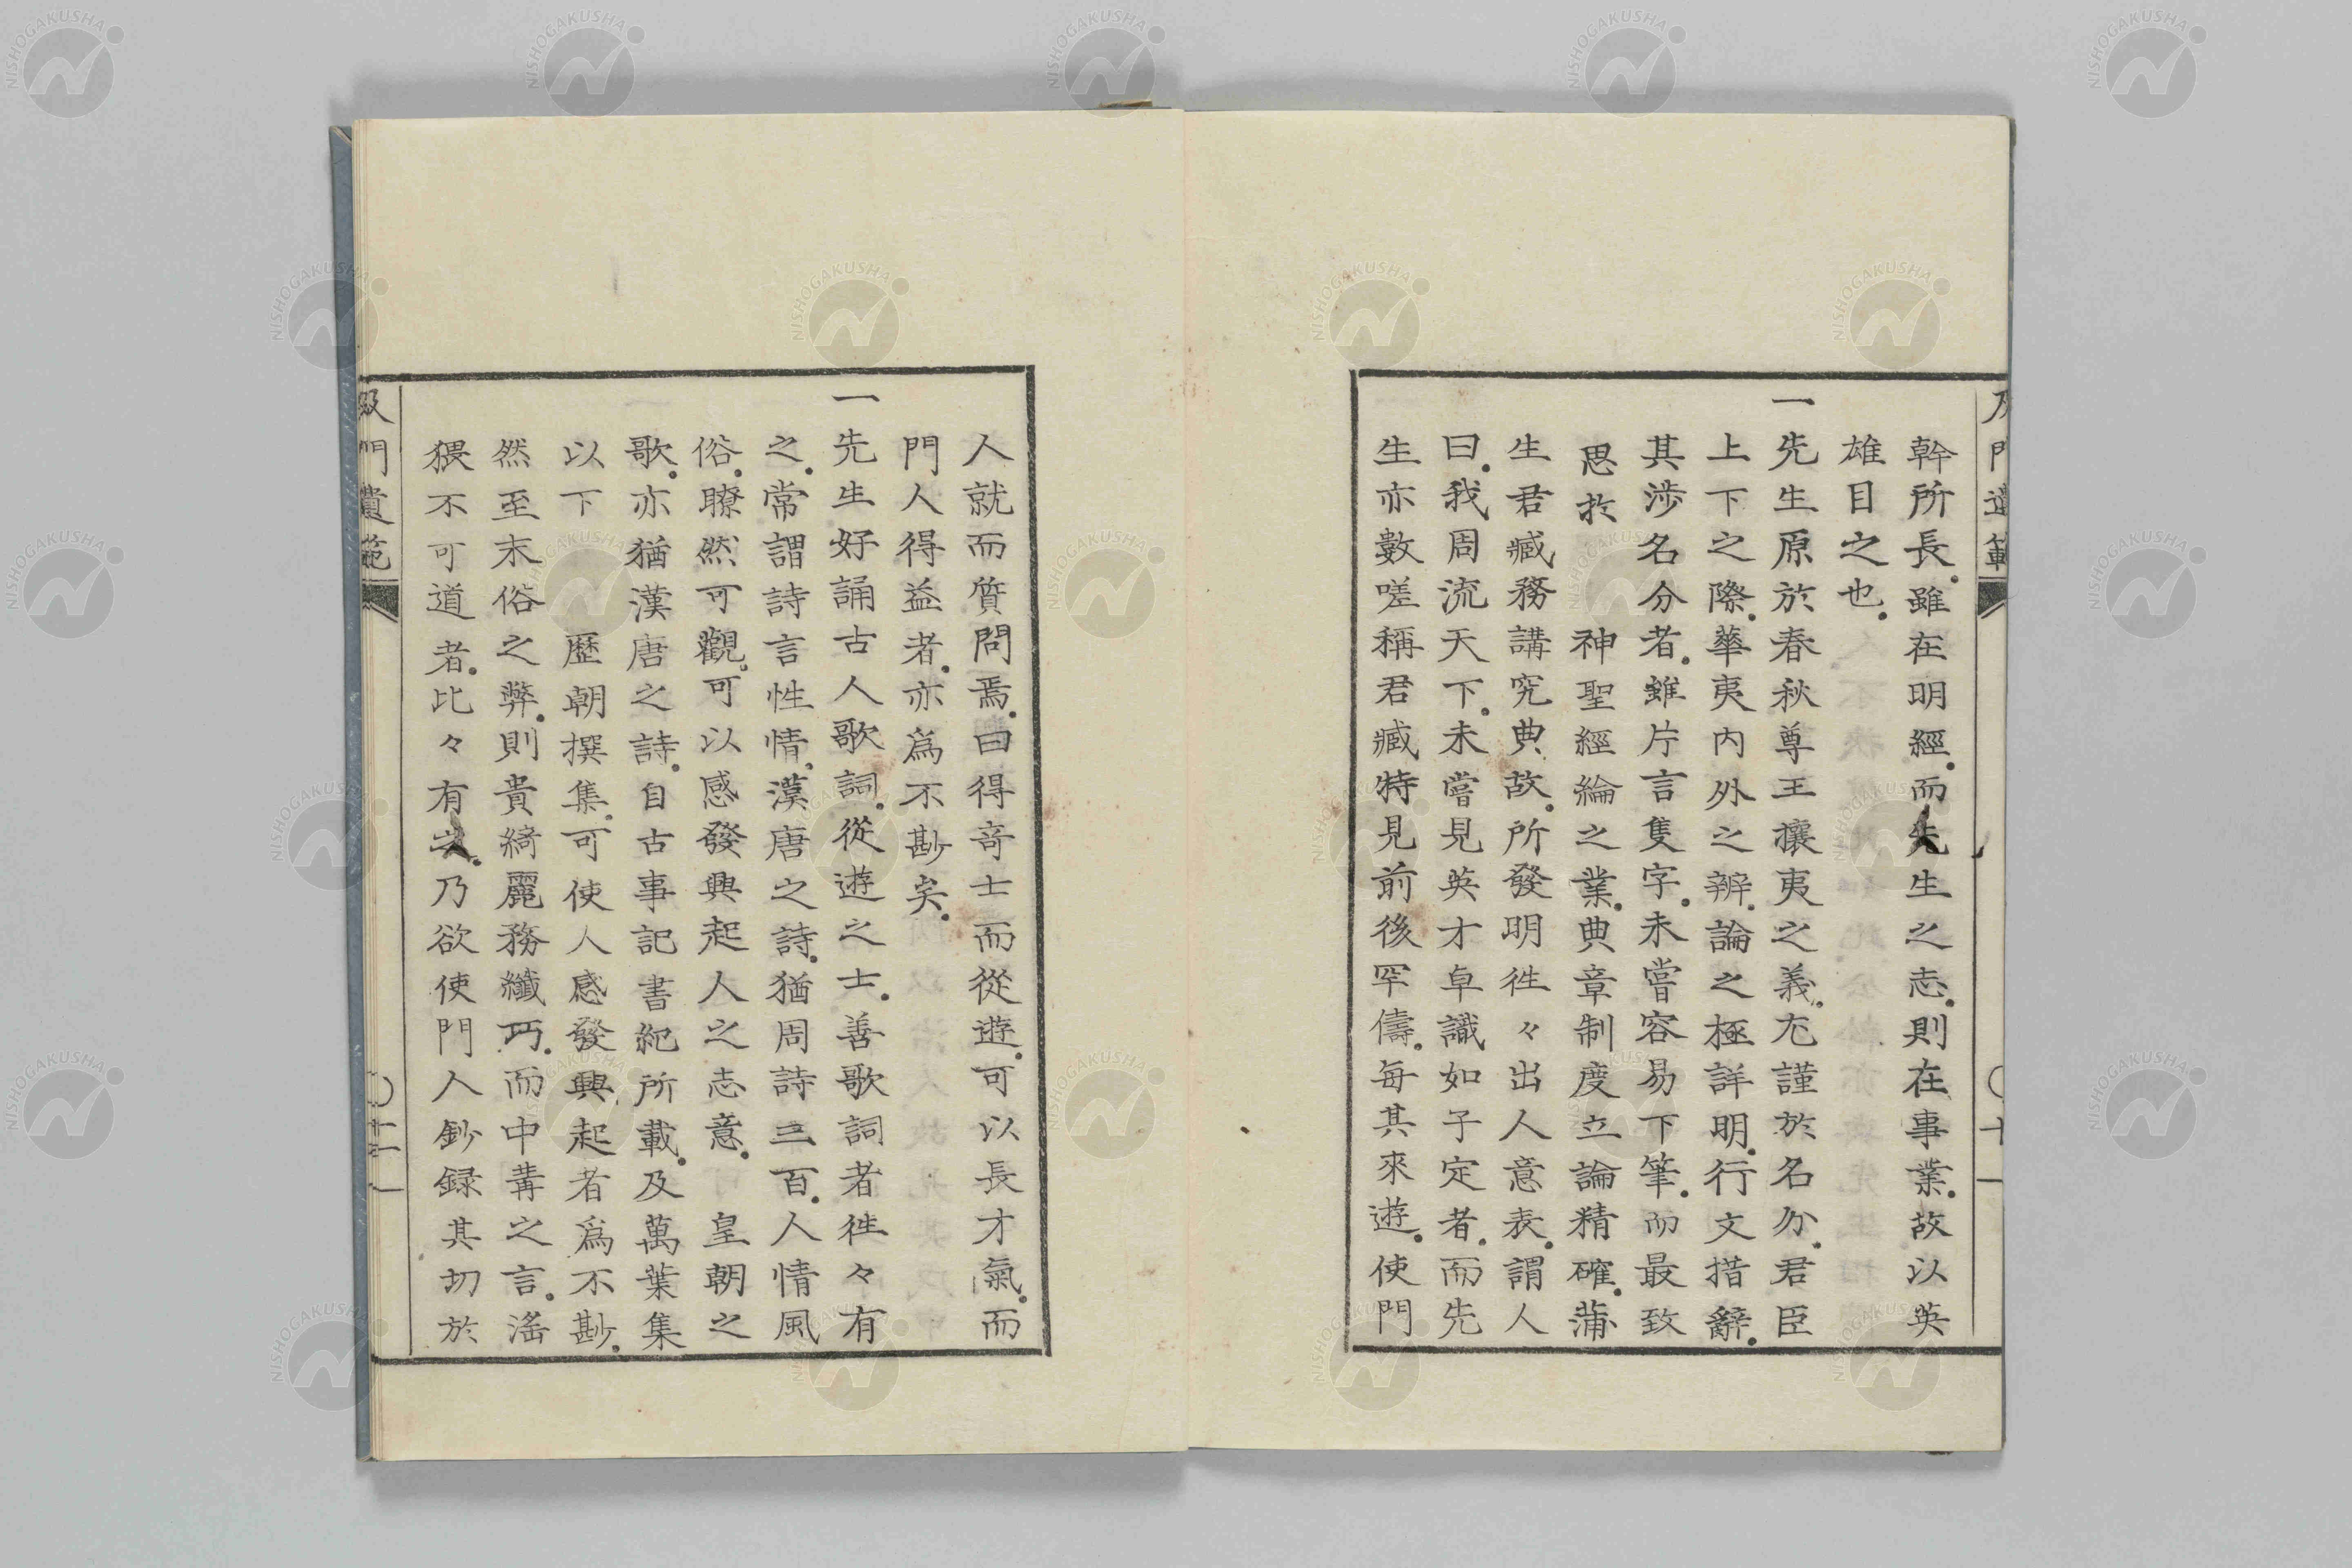 幹所長。雖在明經。而先生之志。則在事業。故以英
雄目之也。
一先生原於春秋尊王攘夷之義。尤謹於名分。君臣
上下之際。華夷內外之辨。論之極詳明。行文措辭。
其涉名分者。雖片言隻字。未嘗容易下筆。而最致
思於　神聖經綸之業。典章制度立論精確。蒲
生君臧務講究典故。所發明徃々出人意表。謂人
曰。我周流天下。未嘗見英才卓識如子定者。而先
生亦數嗟稱君臧特見前後罕儔。每其來遊。使門
人就而質問焉。曰得奇士而從遊。可以長才氣。而
門人得益者。亦爲不尠矣。
一先生好誦古人歌詞。從遊之士。善歌詞者徃々有
之。常謂詩言性情。漢唐之詩。猶周詩三百。人情風
俗。瞭然可觀。可以感發興起人之志意。　皇朝之
歌。亦猶漢唐之詩。自古事記書紀所載。及萬葉集
以下　歷朝撰集。可使人感發興起者爲不尠。
然至末俗之弊。則貴綺麗務纖巧。而中冓之言。淫
猥不可道者。比々有之。乃欲使門人鈔錄其切於
及門遺範
〇十一
NISHOGAKUSHA